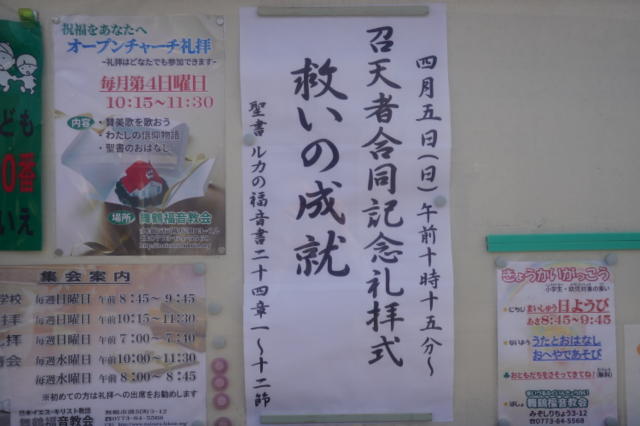 祝福をあなたへ
オープンチャーチ礼拝
~礼拝はどなたでも参加できます~
毎月第4日曜日
10:15~11:30
内容
・讃美歌を歌おう
・わたしの信仰物語
・聖書のおはなし
場所
舞鶴福音教会
ども
0番
いえ
四月五日(日)午前十時十五分~
召天者合同記念礼拝式
救いの成就
聖書 ルカの福音書二十四章一~十二節
集会案内
学校 毎週日曜日 午前 8:45~ 9:45
拝 毎週日曜日 午前 10:15~11:30
拝 毎週日曜日 午前 7:00~ 8:00
会 毎週水曜日 午前 10:00~11:30
毎週水曜日 午後 8:00~
※初めての方は礼拝への出席をお勧めします
日本イエス・キリスト教団
舞鶴福音教会
舞鶴市溝尻町3-12
0773-64-5568
きょうかいがっこう
小学生・幼児対象の集い
にちじ
まいしゅう日ようび
あさ8:45~9:45
ないよう
うたとおはなし
おへやであそび
おともだちをさそってきてね!
ばしょ
舞鶴福音教会
みぞしりちょう3-12
0773-64-5568